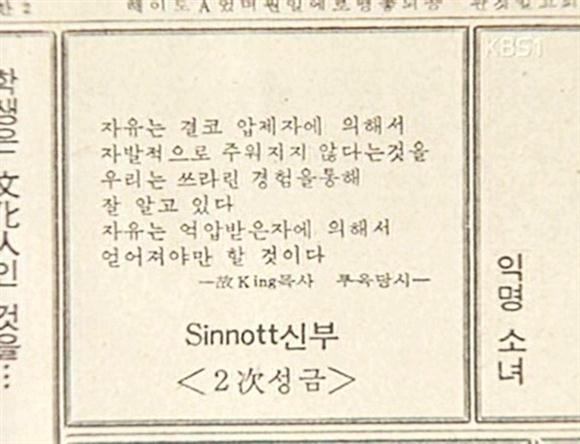 KBS1
자유는 결코 압제자에 의해서
자발적으로 주워지지 않다는것을
우리는 쓰라린 경험을통해
잘 알고 있다
자유는 억압받은자에 의해서
얻어져야만 할 것이다
—故King목사 투옥당시—
Sinnott신부
<2次성금>
학생은 文化人인 것을…
익명 소녀